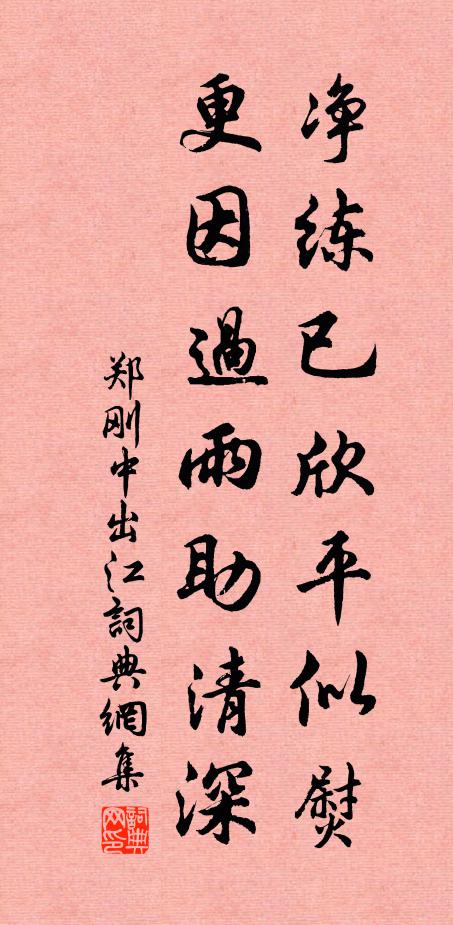 净练已欣平似熨
更因過雨助清深
郑刚中出江詞典網集
詞典网印